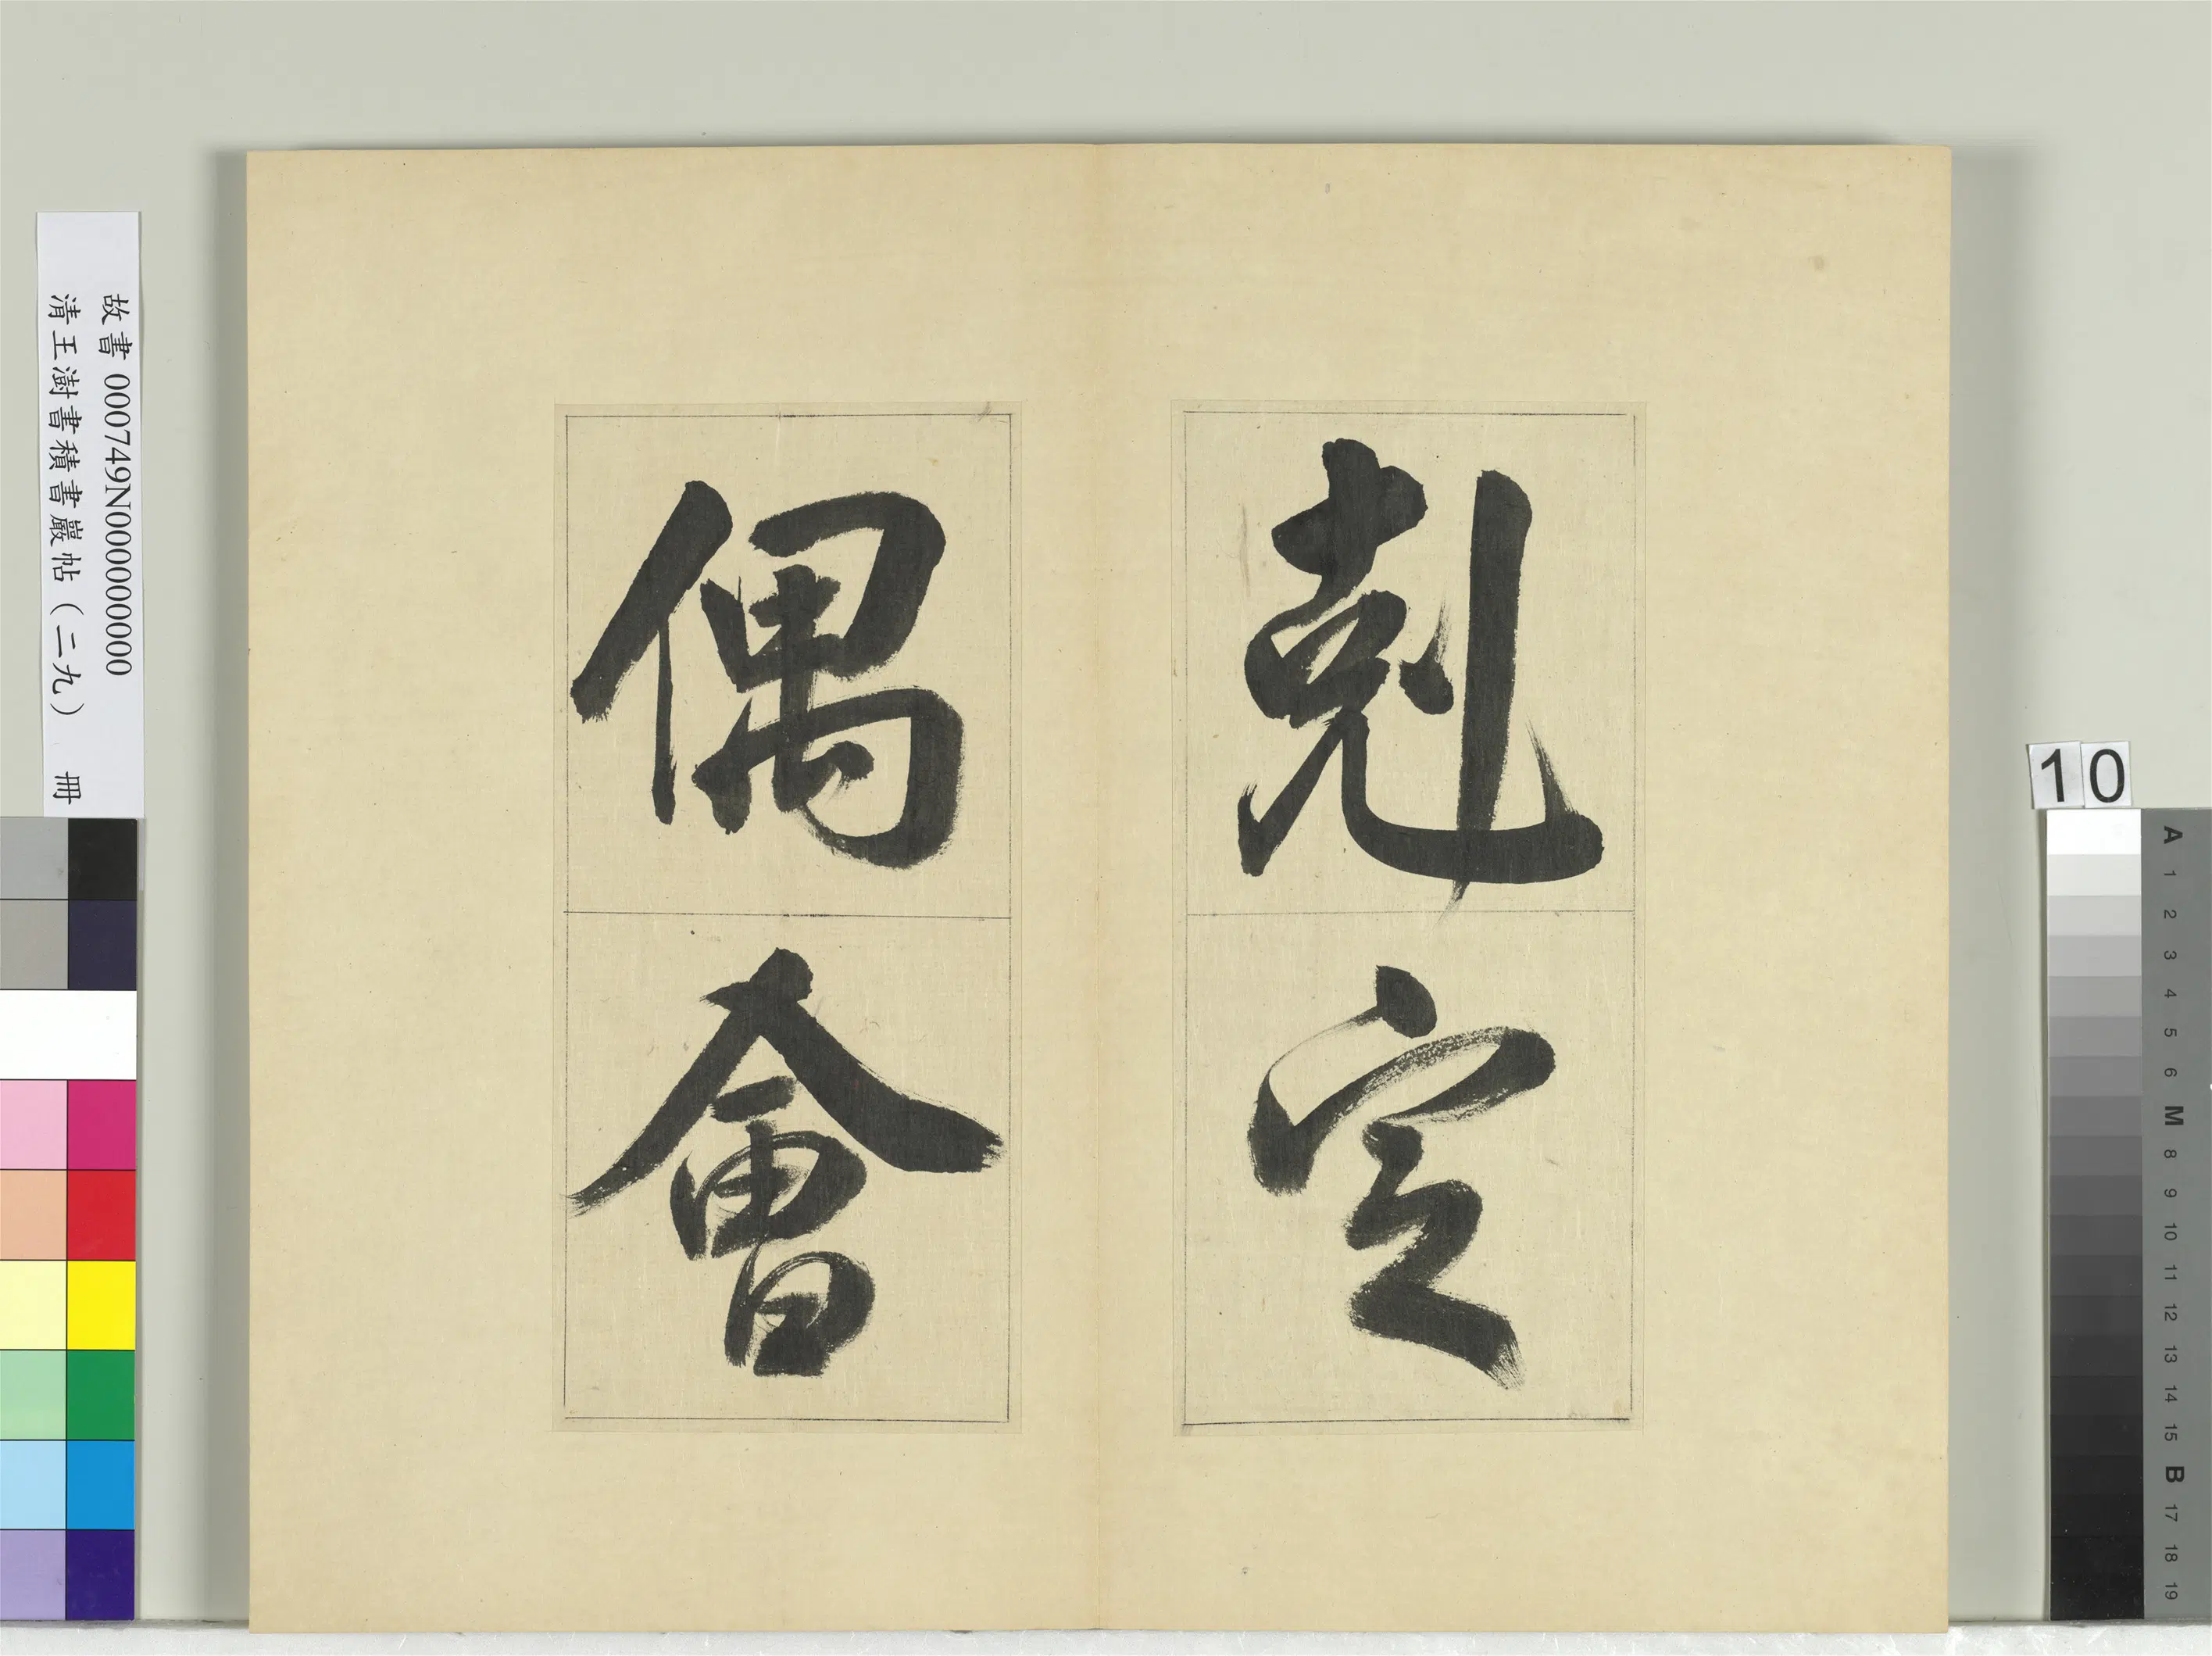 剋定
偶會
故書 000749N000000000
清王澍書積書巖帖（二九） 冊
10
A
1
2
3
4
5
6
M
8
9
10
11
12
13
14
15
B
17
18
19